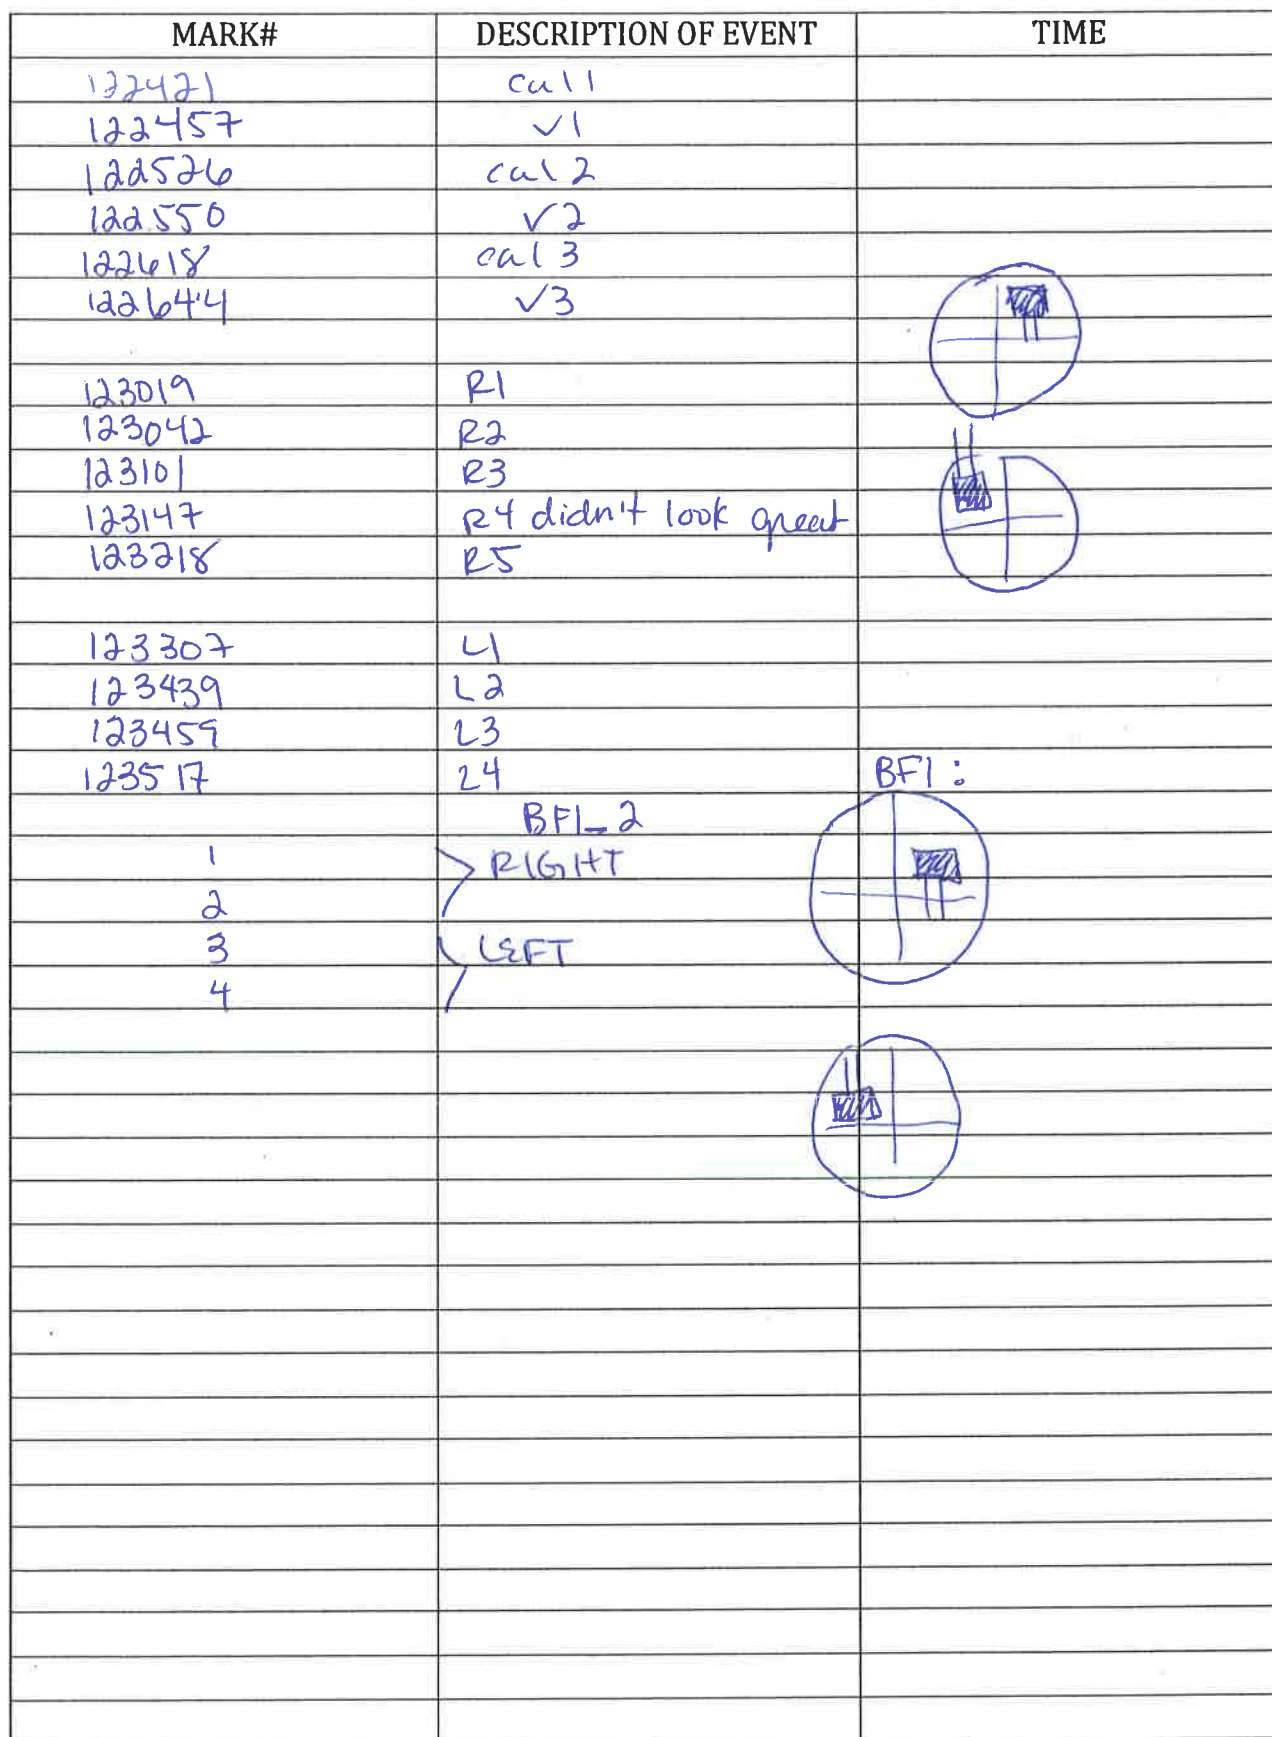 MARK# DESCRIPTION OF EVENT TIME
122421 cal 1
122457 √1
122526 cal 2
122550 √2
122618 cal 3
122644 √3
123019 R1
123042 R2
123101 R3
123147 R4 didn't look great
123218 R5
123307 L1
123439 L2
123459 L3
123517 L4 BFI:
BFI_2
1 RIGHT
2
3 LEFT
4